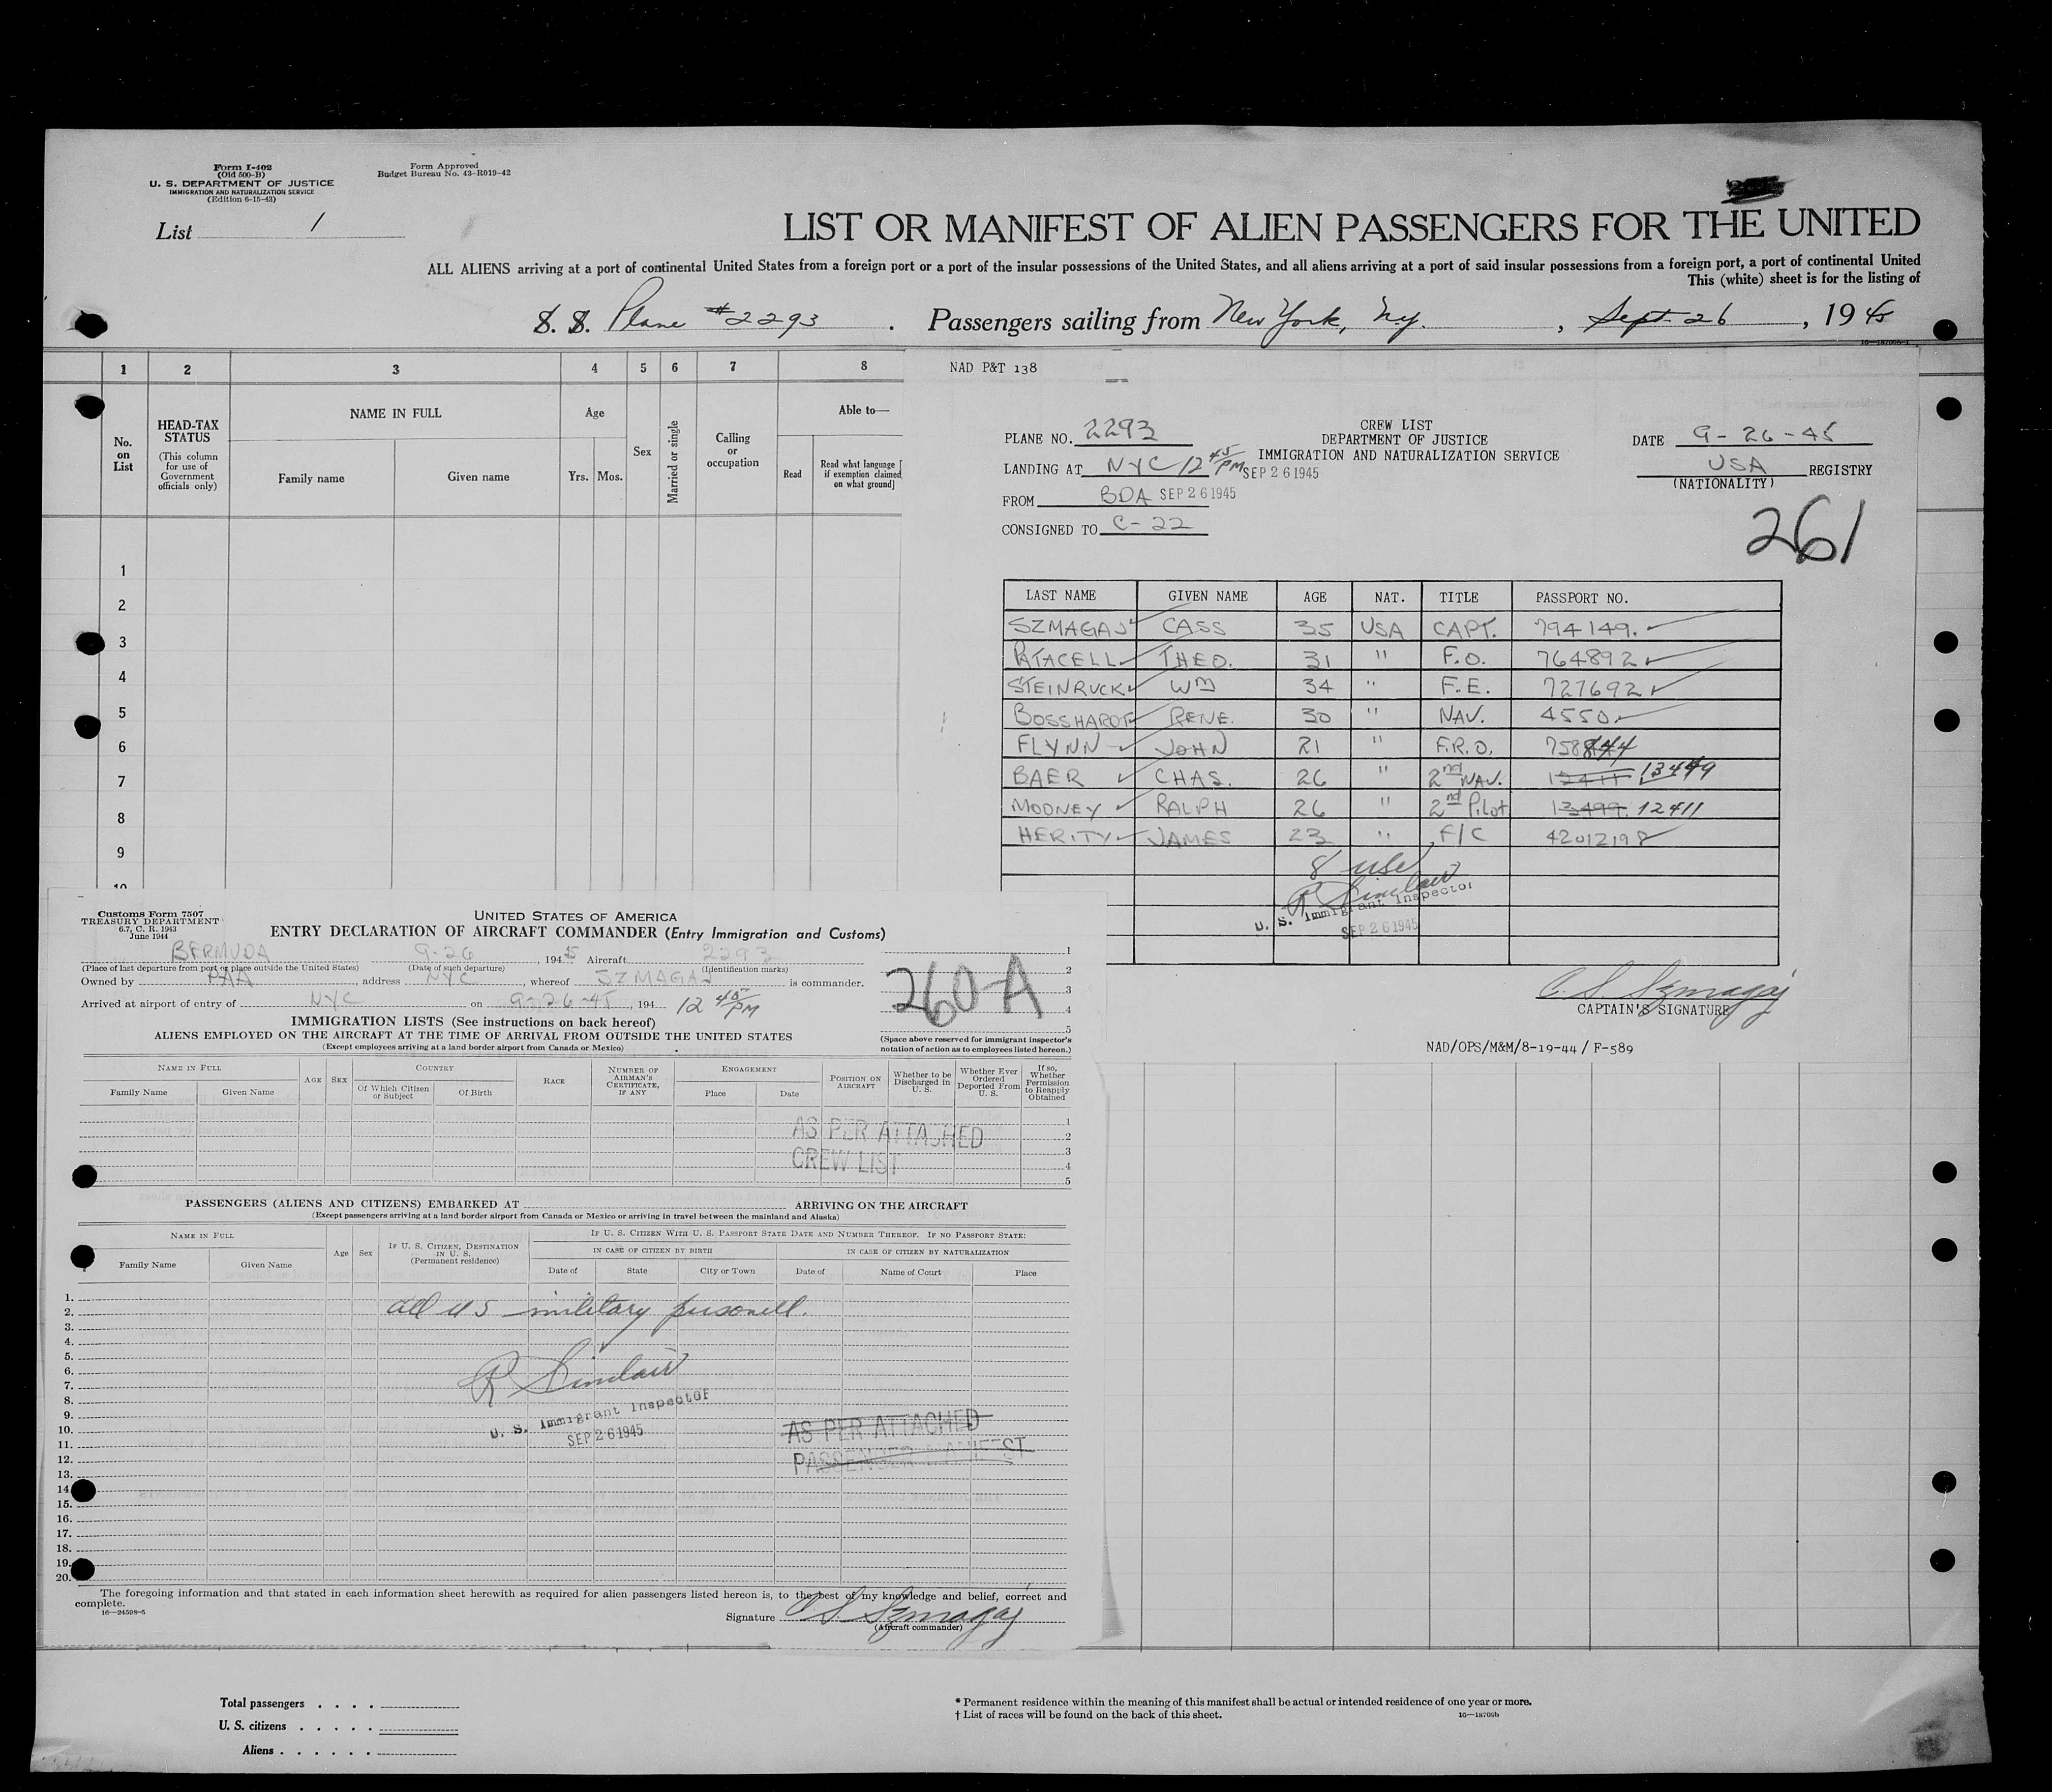 Form I-402
(Old 500-B)
U. S. DEPARTMENT OF JUSTICE
IMMIGRATION AND NATURALIZATION SERVICE
(Edition 6-15-43)
Form Approved
Budget Bureau No. 43-R019-42
List 1
LIST OR MANIFEST OF ALIEN PASSENGERS FOR THE UNITED
ALL ALIENS arriving at a port of continental United States from a foreign port or a port of the insular possessions of the United States, and all aliens arriving at a port of said insular possessions from a foreign port, a port of continental United
This (white) sheet is for the listing of
S. S. Plane #2293. Passengers sailing from New York, N.Y., Sept 26, 1945
1 2 3 4 5 6 7 8
No. on List
HEAD-TAX STATUS
(This column for use of Government officials only)
NAME IN FULL
Family name Given name
Age
Yrs. Mos.
Sex
Married or single
Calling or occupation
Able to—
Read
Read what language [
if exemption claimed,
on what ground]
1
2
3
4
5
6
7
8
9
10
NAD P&T 138
CREW LIST
DEPARTMENT OF JUSTICE
IMMIGRATION AND NATURALIZATION SERVICE
PLANE NO. 2293
LANDING AT NYC 12 45/PM SEP 26 1945
FROM BDA SEP 26 1945
CONSIGNED TO C-22
DATE 9-26-45
USA REGISTRY
(NATIONALITY)
261
LAST NAME GIVEN NAME AGE NAT. TITLE PASSPORT NO.
SZMAGAJ CASS 35 USA CAPT. 794149.
PATACELL THEO. 31 " F.O. 764892
STEINRUCK Wm 34 " F.E. 727692
BOSSHARDT RENE. 30 " NAV. 4550
FLYNN JOHN 21 " F.R.O. 758844
BAER CHAS. 26 " 2nd NAV. 12411 13499
MOONEY RALPH 26 " 2nd Pilot 13499. 12411
HERITY JAMES 23 " F/C 42012198
8 usc
R Sinclair
U. S. Immigrant Inspector
SEP 26 1945
C. S. Szmagaj
CAPTAIN'S SIGNATURE
NAD/OPS/M&M/8-19-44 / F-589
Customs Form 7507
TREASURY DEPARTMENT
6.7, C. R. 1943
June 1944
UNITED STATES OF AMERICA
ENTRY DECLARATION OF AIRCRAFT COMMANDER (Entry Immigration and Customs)
BERMUDA 9-26, 1945 Aircraft 2293
(Place of last departure from port or place outside the United States) (Date of such departure) (Identification marks)
Owned by PAA, address NYC, whereof SZMAGAJ is commander.
Arrived at airport of entry of NYC on 9-26-45, 194 12 45/PM
260-A
1
2
3
4
5
(Space above reserved for immigrant inspector's notation of action as to employees listed hereon.)
IMMIGRATION LISTS (See instructions on back hereof)
ALIENS EMPLOYED ON THE AIRCRAFT AT THE TIME OF ARRIVAL FROM OUTSIDE THE UNITED STATES
(Except employees arriving at a land border airport from Canada or Mexico)
NAME IN FULL
Family Name Given Name
AGE SEX
COUNTRY
Of Which Citizen or Subject Of Birth
RACE
NUMBER OF AIRMAN'S CERTIFICATE, IF ANY
ENGAGEMENT
Place Date
POSITION ON AIRCRAFT
Whether to be Discharged in U. S.
Whether Ever Ordered Deported From U. S.
If so, Whether Permission to Reapply Obtained
1
2
3
4
5
AS PER ATTACHED
CREW LIST
PASSENGERS (ALIENS AND CITIZENS) EMBARKED AT ARRIVING ON THE AIRCRAFT
(Except passengers arriving at a land border airport from Canada or Mexico or arriving in travel between the mainland and Alaska)
NAME IN FULL
Family Name Given Name
Age Sex
IF U. S. CITIZEN, DESTINATION IN U. S.
(Permanent residence)
IF U. S. CITIZEN WITH U. S. PASSPORT STATE DATE AND NUMBER THEREOF. IF NO PASSPORT STATE:
IN CASE OF CITIZEN BY BIRTH IN CASE OF CITIZEN BY NATURALIZATION
Date of State City or Town Date of Name of Court Place
1.
2.
3.
4.
5.
6.
7.
8.
9.
10.
11.
12.
13.
14.
15.
16.
17.
18.
19.
20.
all U S military personell.
R Sinclair
U. S. Immigrant Inspector
SEP 26 1945
AS PER ATTACHED
PASSENGER MANIFEST
The foregoing information and that stated in each information sheet herewith as required for alien passengers listed hereon is, to the best of my knowledge and belief, correct and
complete.
16—24598-5
Signature C S Szmagaj
(Aircraft commander)
Total passengers . . . .
U. S. citizens . . . . .
Aliens . . . . . .
* Permanent residence within the meaning of this manifest shall be actual or intended residence of one year or more.
† List of races will be found on the back of this sheet.
16—18706b